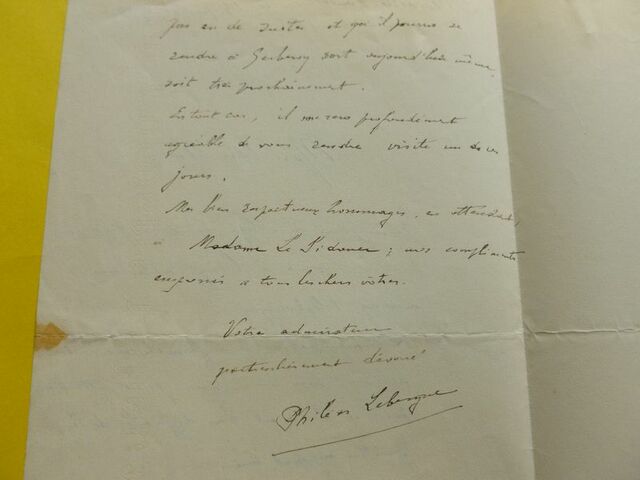 pas eu de suites et qu'il pourra se
rendre à Gerberoy soit aujourd'hui même,
soit très prochainement.
En tout cas, il me sera profondément
agréable de vous rendre visite un de ces
jours.
Mes bien respectueux hommages, en attendant,
à Madame Le Sidaner ; mes compliments
empressés à tous les chers vôtres.
Votre admirateur
particulièrement dévoué
Philéas Lebesgue